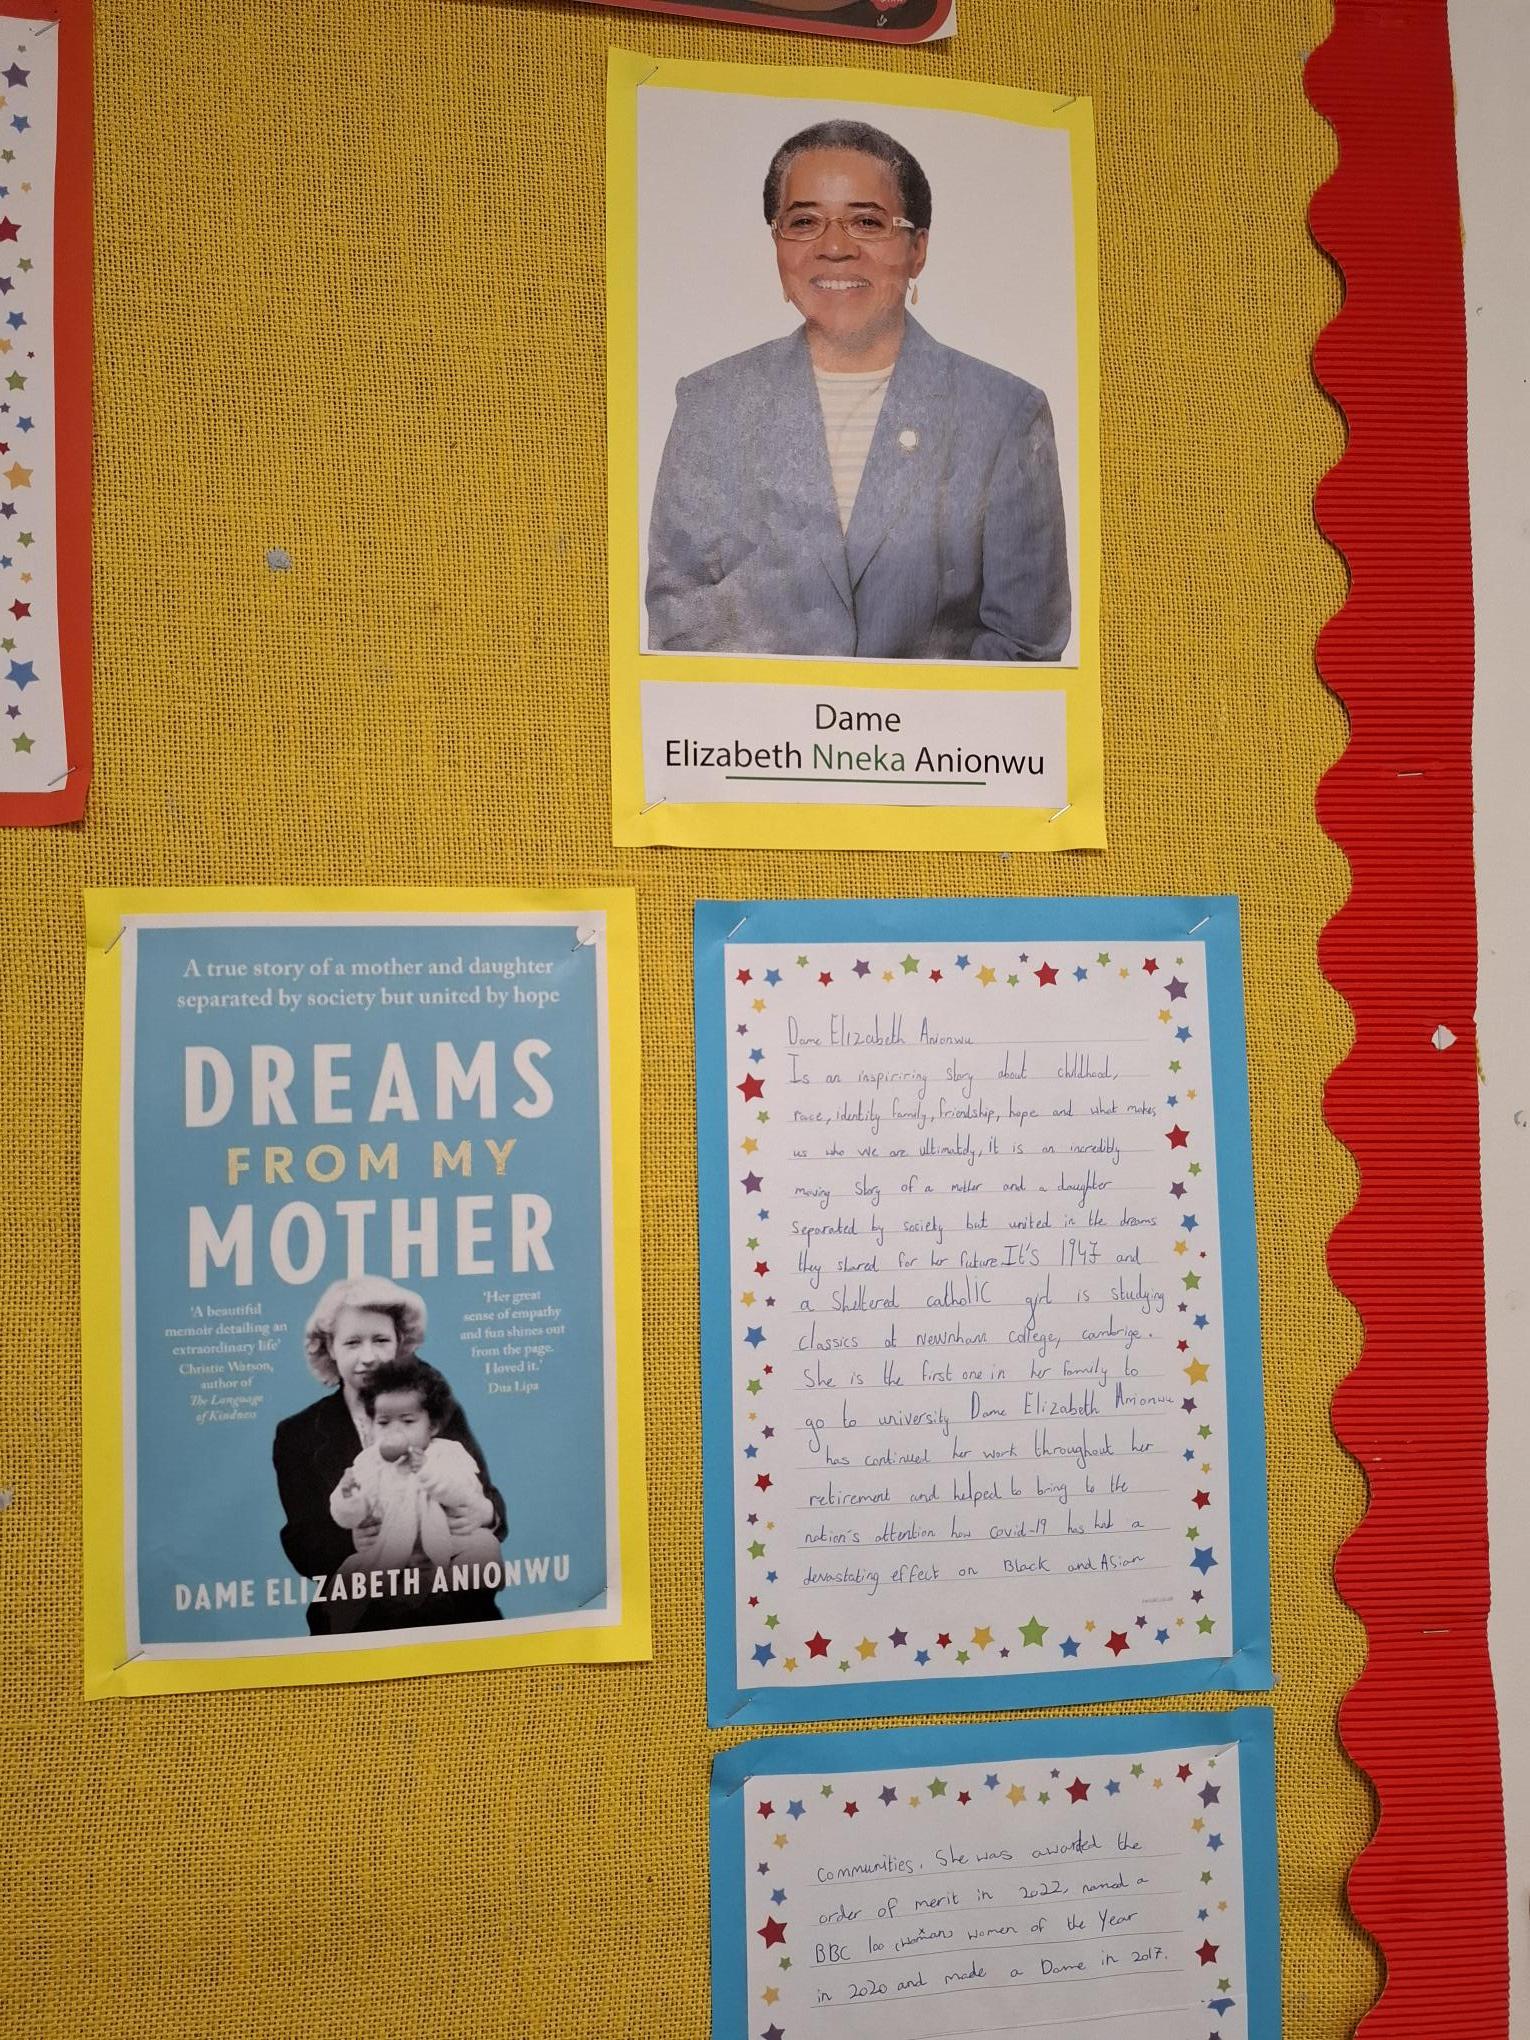 Dame
Elizabeth Nneka Anionwu
A true story of a mother and daughter
separated by society but united by hope
DREAMS
FROM MY
MOTHER
'A beautiful
memoir detailing an
extraordinary life'
Christie Watson,
author of
The Language
of Kindness
'Her great
sense of empathy
and fun shines out
from the page.
I loved it.'
Dua Lipa
DAME ELIZABETH ANIONWU
Dame Elizabeth Anionwu
Is an inspiriring story about childhood,
race, identity family, friendship, hope and what makes
us who we are ultimately, it is an incredibly
moving story of a mother and a daughter
separated by society but united in the dreams
they shared for her future It's 1947 and
a sheltered catholic girl is studying
classics at newnham college, cambrige.
She is the first one in her family to
go to university Dame Elizabeth Anionwu
has continued her work throughout her
retirement and helped to bring to the
nation's attention how covid-19 has had a
devastating effect on Black and Asian
communities. She was awarded the
order of merit in 2022, named a
BBC 100 women of the Year
in 2020 and made a Dame in 2017.